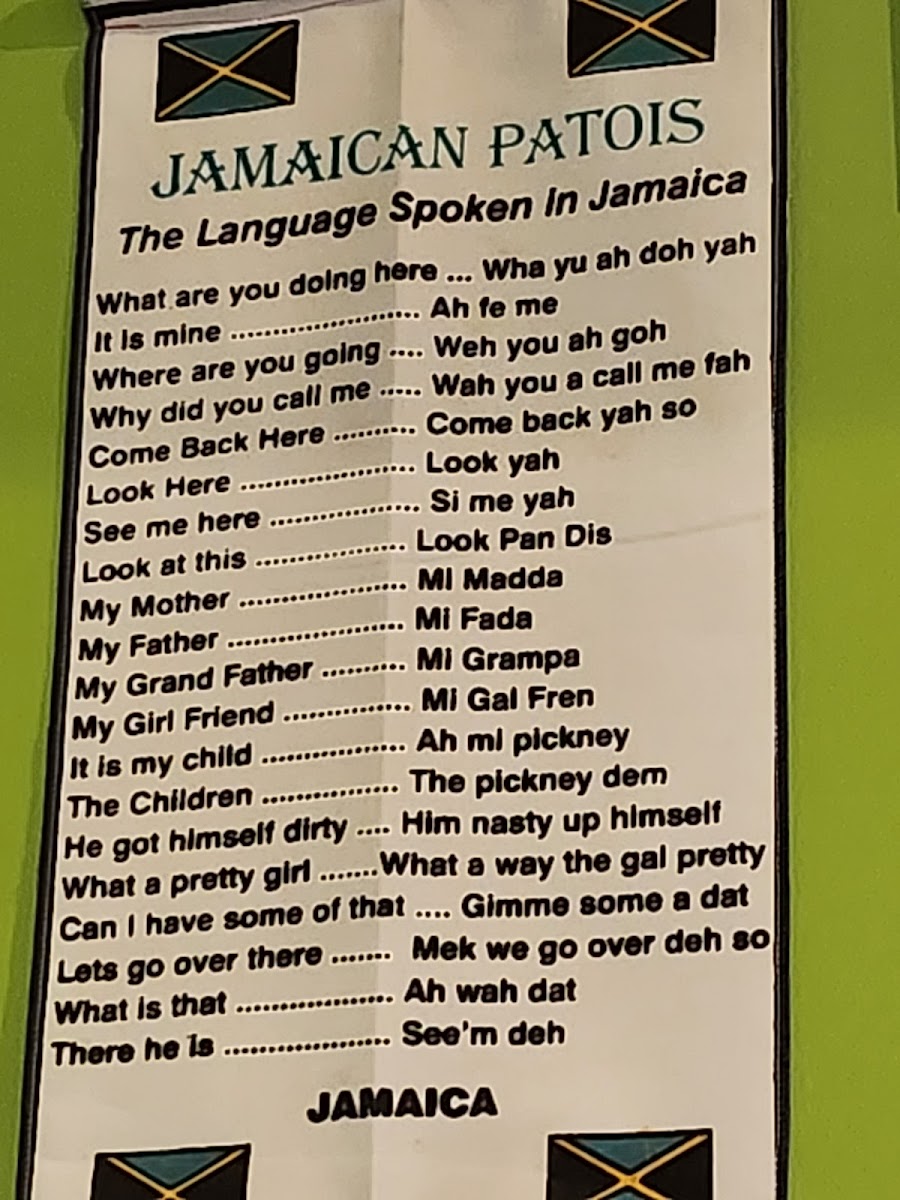 JAMAICAN PATOIS
The Language Spoken In Jamaica
What are you doing here ... Wha yu ah doh yah
It is mine ........................ Ah fe me
Where are you going .... Weh you ah goh
Why did you call me ..... Wah you a call me fah
Come Back Here .......... Come back yah so
Look Here ...................... Look yah
See me here ................... Si me yah
Look at this ................... Look Pan Dis
My Mother ..................... Mi Madda
My Father ...................... Mi Fada
My Grand Father .......... Mi Grampa
My Girl Friend ................ Mi Gal Fren
It is my child .................. Ah mi pickney
The Children ................. The pickney dem
He got himself dirty .... Him nasty up himself
What a pretty girl .......What a way the gal pretty
Can I have some of that .... Gimme some a dat
Lets go over there ....... Mek we go over deh so
What is that ................... Ah wah dat
There he is .................... See'm deh
JAMAICA